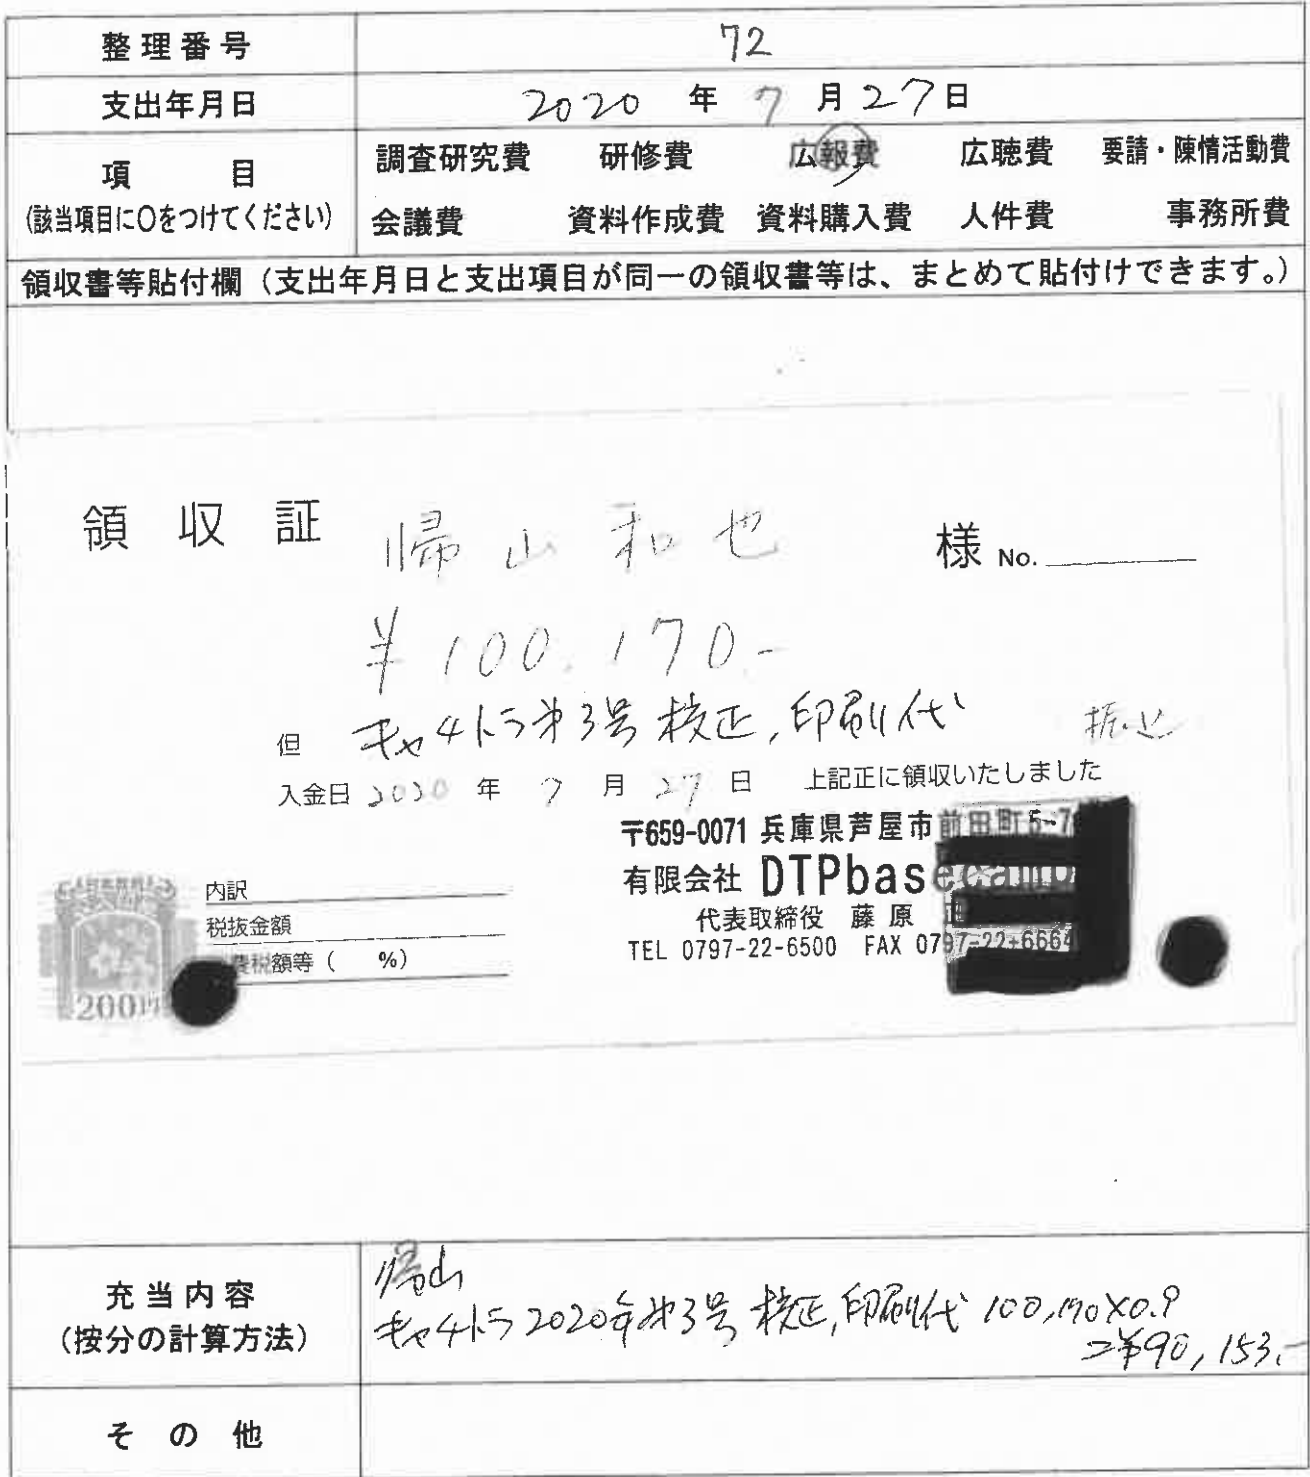 整理番号 72
支出年月日 2020 年 7 月 27 日
項 目 調査研究費 研修費 広報費 広聴費 要請・陳情活動費
(該当項目に〇をつけてください) 会議費 資料作成費 資料購入費 人件費 事務所費
領収書等貼付欄(支出年月日と支出項目が同一の領収書等は、まとめて貼付けできます。)
領収証 帰山和也 様 No.
¥100,170-
但 キャ4トラ第3号 校正,印刷代 振込
入金日 2020 年 7 月 27 日 上記正に領収いたしました
〒659-0071 兵庫県芦屋市前田町5-7
有限会社 DTPbasecamp
代表取締役 藤原
TEL 0797-22-6500 FAX 0797-22-6664
内訳
税抜金額
費税額等( %)
200円
帰山
充当内容 キャ4トラ2020年第3号 校正,印刷代 100,170×0.9
(按分の計算方法) =¥90,153.-
その他